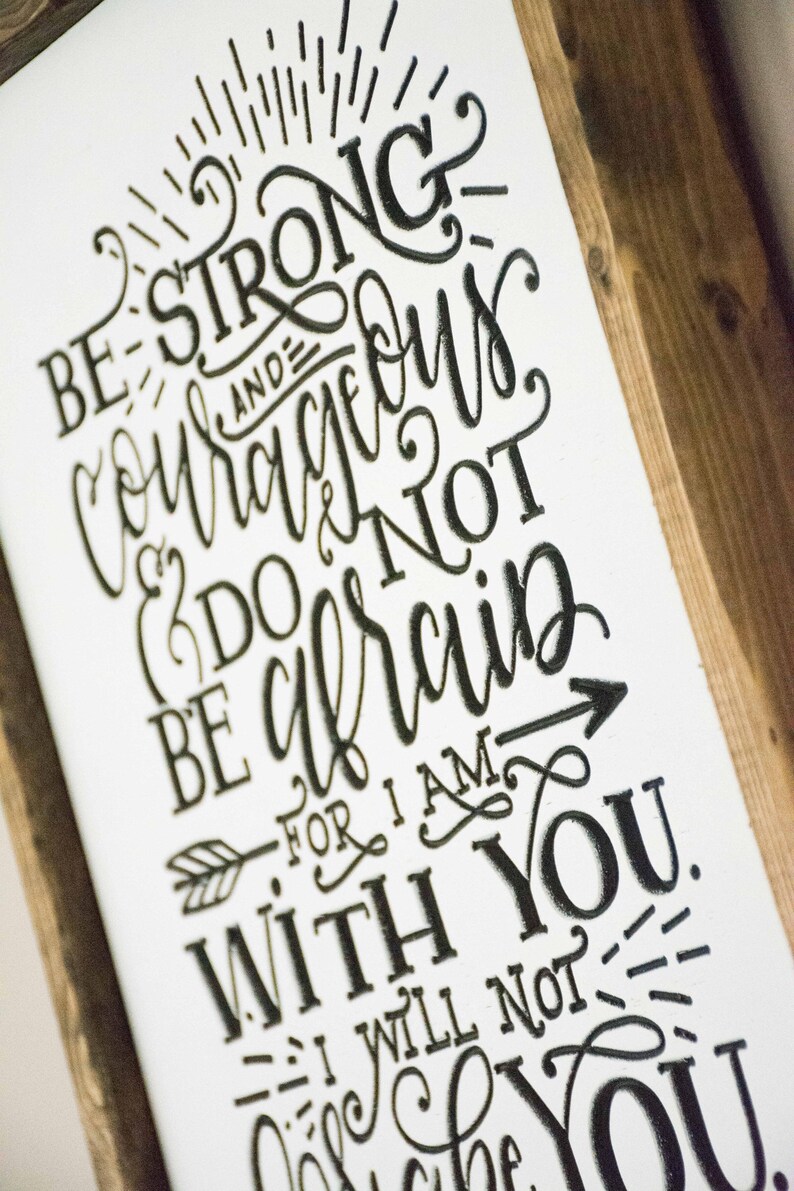 BE STRONG
AND
courageous
& DO NOT
BE afraid
FOR I AM
WITH YOU.
I WILL NOT
YOU.